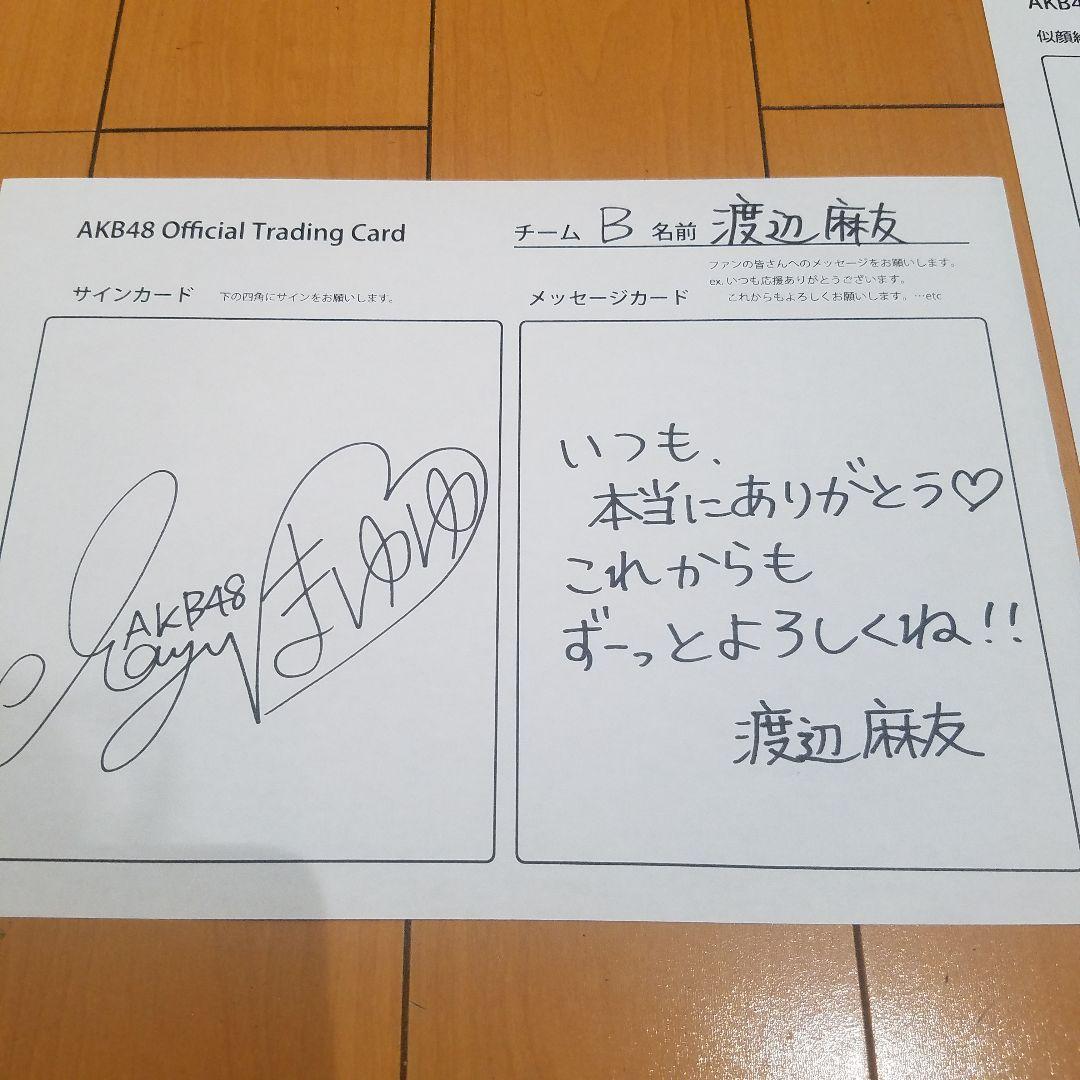 AKB48 Official Trading Card
チーム B 名前 渡辺麻友
サインカード 下の四角にサインをお願いします。
AKB48
Mayu
まゆゆ
メッセージカード
ファンの皆さんへのメッセージをお願いします。
ex. いつも応援ありがとうございます。
これからもよろしくお願いします。…etc
いつも、
本当にありがとう♡
これからも
ずーっとよろしくね!!
渡辺麻友
AKB4
似顔絵